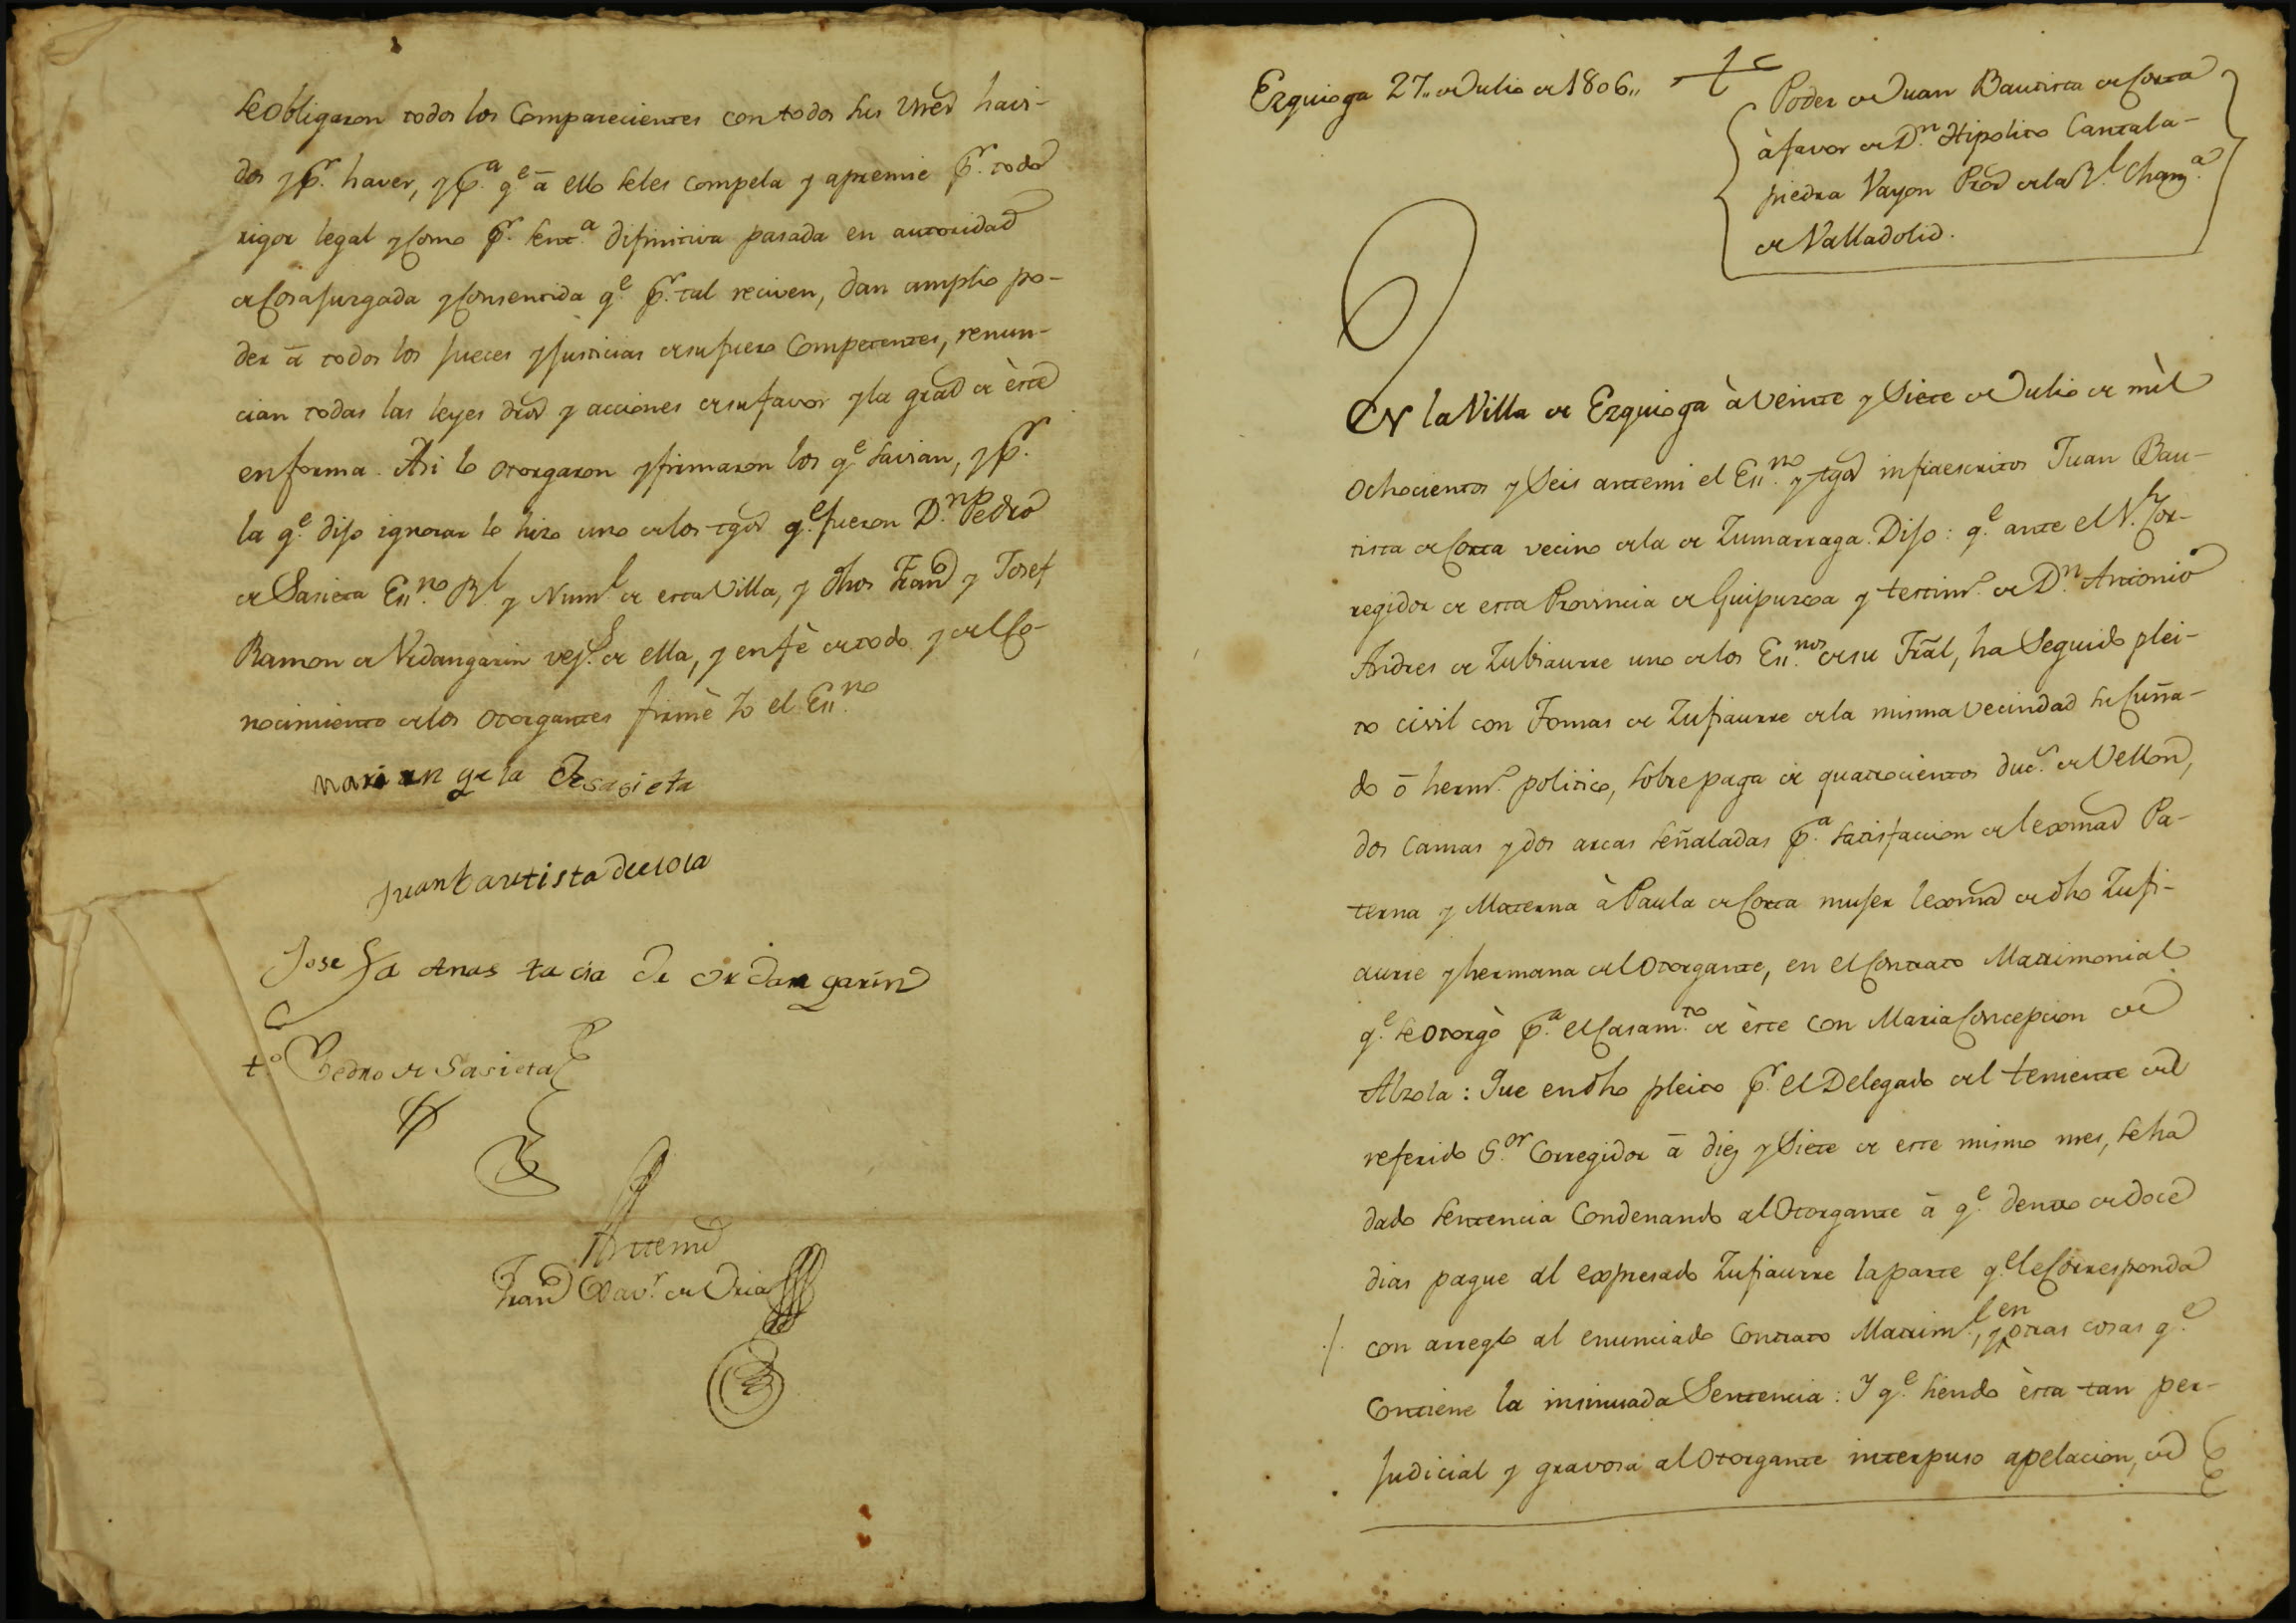 se obligaron todos los Comparecientes con todos sus vnes havi-
dos y pr. haver, y pa. qe. â ello seles compela y apremie pr. todo
rigor legal y Como pr. senta. difinitiva pasada en autoridad
de Cosa Juzgada y Consentida qe. pr. tal reciven, dan amplio po-
der â todos los Jueces y Justicias de su fuero Competentes, renun-
cian todas las leyes dros y acciones de su favor y la gral de êste
en forma. Asi lo otorgaron y firmaron los qe. savian, y pr.
la qe. dijo ignorar lo hizo uno de los tgos qe. fueron Dn. Pedro
de Sasieta Essno. Rl. y Numl. de esta Villa, y dhos Franco y Josef
Ramon de Vrdangarin vejs. de ella, y en fè de todo y del Co-
nocimiento de los otorgantes firmè Yo el Essno.
Mari angela de sasieta
Juan bautista de
Josefa Anastacia de ordangarin
to. Pedro de Sasieta
Antemi
Franco Xavr. de Oria
Ezquioga 27,, de Julio de 1806,,
Poder de Juan Bautista de Corta
à favor de Dn. Hipolito Cantala-
piedra Vayon Pror de la Rl. Chanza.
de Valladolid.
EN la Villa de Ezquioga à veinte y Siete de Julio de mìl
ochocientos y Seis antemi el Essno. y tgos infraescritos Juan Bau-
tista de Corta vecino de la de Zumarraga. Dijo: qe. ante el Sr. Cor-
regidor de esta Provincia de Guipuzcoa y testimo. de Dn. Antonio
Andres de Zubiaurre uno de los Essnos. de su Tral, ha Seguido plei-
to civil con Tomas de Zufiaurre de la misma vecindad su Cuña-
do ô hermo. politico, sobre paga de quatrocientos ducs. de Vellon,
dos camas y dos arcas señaladas pa. satisfaccion de lexmas Pa-
terna y Materna à Paula de Corta mujer lexma de dho Zufi-
aurre y hermana del Otorgante, en el Contrato Matrimonial
qe. se otorgò pa. el Casamto. de èste con Maria Concepcion de
Alzola: Que en dho pleito pr. el Delegado del teniente del
referido Sor. Corregidor â diez y Siete de este mismo mes, se ha
dado sentencia Condenando al Otorgante â qe. dentro de doce
dias pague al expresado Zufiaurre la parte qe. le Corresponda
con arreglo al enunciado Contrato Matriml., y en otras cosas qe.
Contiene la insinuada Sentencia: Y qe. siendo èsta tan per-
judicial y gravosa al Otorgante interpuso apelacion, de